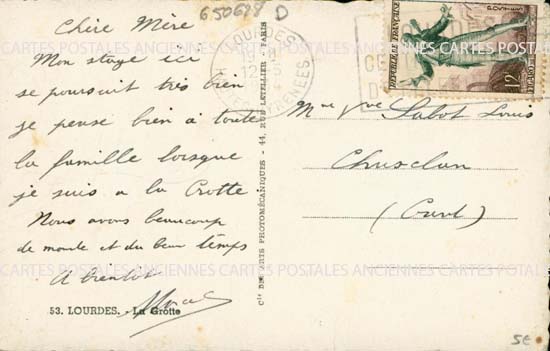 650688 D
Chère Mère
Mon séjour ici
se poursuit très bien
je pense bien à toute
la famille lorsque
je suis a la Grotte
Nous avons beaucoup
de monde et du beau temps
A bientôt
53. LOURDES. - La Grotte
Cie DES ARTS PHOTOMÉCANIQUES - 44, RUE LETELLIER - PARIS
LOURDES
PYRENEES
REPUBLIQUE FRANÇAISE
POSTES
12F
Mme Vve Sabot Louis
Chusclan
(Gard)
5€
CARTES POSTALES ANCIENNES CARTES POSTALES ANCIENNES
CARTES POSTALES ANCIENNES CARTES POSTALES ANCIENNES
CARTES POSTALES ANCIENNES CARTES POSTALES ANCIENNES